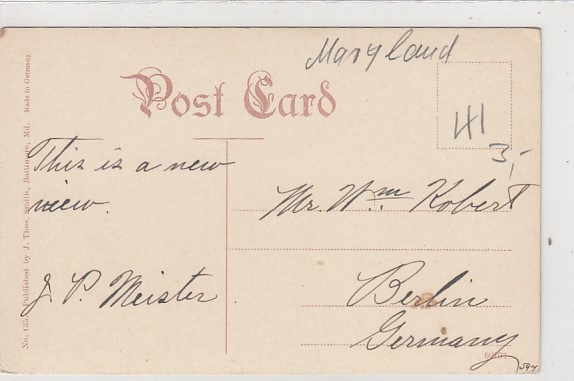 Maryland
Post Card
41
3,-
This is a new
view.
J. P. Meister
Mr. Wm. Kobert
Berlin
Germany
Published by J. Thos. Smith, Baltimore, Md. Made in Germany